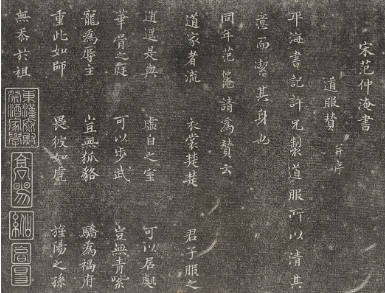 宋范仲淹書
道服贊 并序
平海書記許兄製道服所以清其
意而潔其身也
同年范仲淹請為贊云
道家者流 衣裳楚楚 君子服之
逍遙是與 虛白之室 可以居處
華胥之庭 可以步武 豈無青紫
寵為辱主 豈無狐貉 驕為禍府
重此如師 畏彼如虎 旌陽之孫
無忝於祖